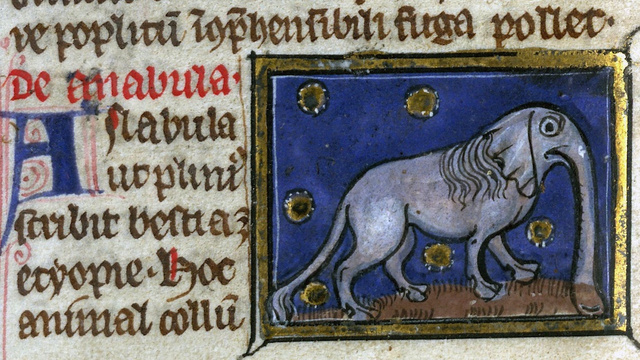 ve poplitū īꝯp̄hensibili fuga pollet·
De anabula·
Aslabula
ut pliniꝰ
scribit bestia ꝫ
etyopie· Hoc
animal collū